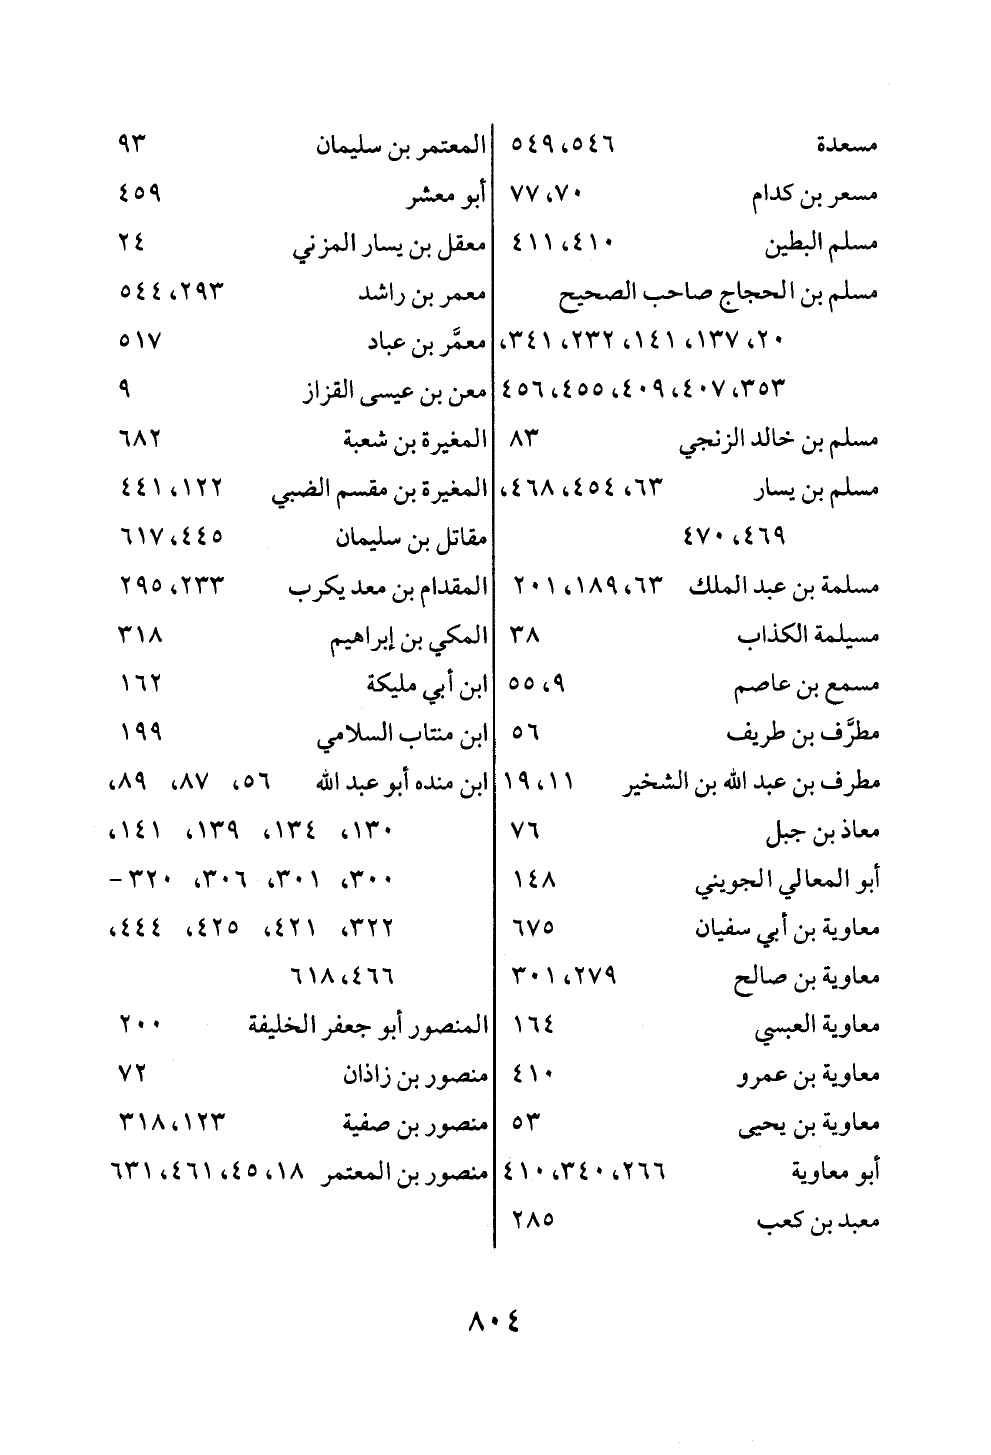 مسعدة ٥٤٦، ٥٤٩
مسعر بن كدام ٧٠، ٧٧
مسلم البطين ٤١٠، ٤١١
مسلم بن الحجاج صاحب الصحيح
٢٠، ١٣٧، ١٤١، ٢٣٢، ٣٤١،
٣٥٣، ٤٠٧، ٤٠٩، ٤٥٥، ٤٥٦
مسلم بن خالد الزنجي ٨٣
مسلم بن يسار ٦٣، ٤٥٤، ٤٦٨،
٤٦٩، ٤٧٠
مسلمة بن عبد الملك ٦٣، ١٨٩، ٢٠١
مسيلمة الكذاب ٣٨
مسمع بن عاصم ٩، ٥٥
مطرَّف بن طريف ٥٦
مطرف بن عبد الله بن الشخير ١١، ١٩
معاذ بن جبل ٧٦
أبو المعالي الجويني ١٤٨
معاوية بن أبي سفيان ٦٧٥
معاوية بن صالح ٢٧٩، ٣٠١
معاوية العبسي ١٦٤
معاوية بن عمرو ٤١٠
معاوية بن يحيى ٥٣
أبو معاوية ٢٦٦، ٣٤٠، ٤١٠
معبد بن كعب ٢٨٥
المعتمر بن سليمان ٩٣
أبو معشر ٤٥٩
معقل بن يسار المزني ٢٤
معمر بن راشد ٢٩٣، ٥٤٤
معمَّر بن عباد ٥١٧
معن بن عيسى القزاز ٩
المغيرة بن شعبة ٦٨٢
المغيرة بن مقسم الضبي ١٢٢، ٤٤١
مقاتل بن سليمان ٤٤٥، ٦١٧
المقدام بن معد يكرب ٢٣٣، ٢٩٥
المكي بن إبراهيم ٣١٨
ابن أبي مليكة ١٦٢
ابن منتاب السلامي ١٩٩
ابن منده أبو عبد الله ٥٦، ٨٧، ٨٩،
١٣٠، ١٣٤، ١٣٩، ١٤١،
٣٠٠، ٣٠١، ٣٠٦، ٣٢٠-
٣٢٢، ٤٢١، ٤٢٥، ٤٤٤،
٤٦٦، ٦١٨
المنصور أبو جعفر الخليفة ٢٠٠
منصور بن زاذان ٧٢
منصور بن صفية ١٢٣، ٣١٨
منصور بن المعتمر ١٨، ٤٥، ٤٦١، ٦٣١
٨٠٤